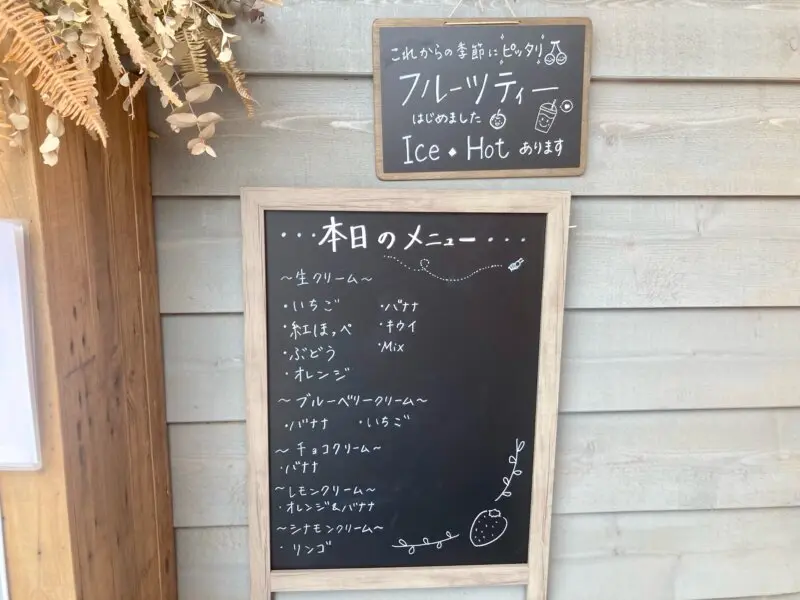 これからの季節にピッタリ
フルーツティー
はじめました
Ice・Hot あります
・・・本日のメニュー・・・
〜生クリーム〜
・いちご ・バナナ
・紅ほっぺ ・キウイ
・ぶどう ・Mix
・オレンジ
〜ブルーベリークリーム〜
・バナナ ・いちご
〜チョコクリーム〜
・バナナ
〜レモンクリーム〜
・オレンジ&バナナ
〜シナモンクリーム〜
・リンゴ